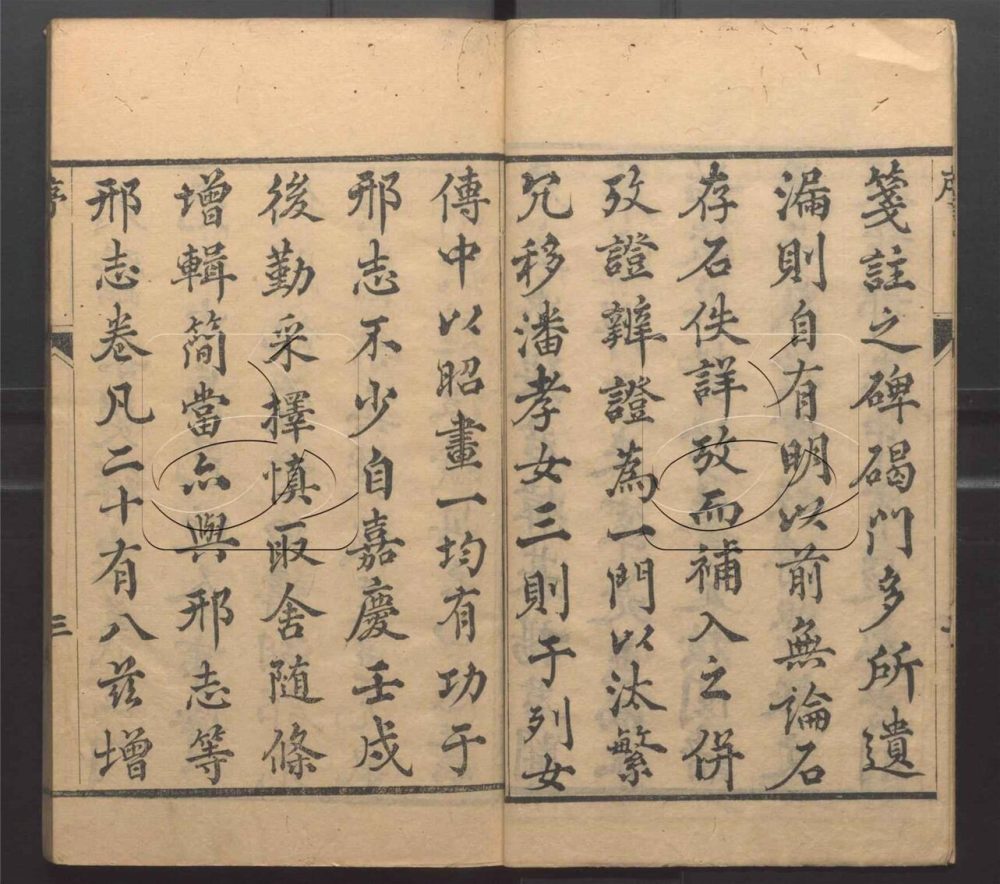 箋註之碑碣門多所遺
漏則自有明以前無論石
存石佚詳攷而補入之併
攷證辨證為一門以汰繁
冗移潘孝女三則于列女
傳中以昭畫一均有功于
邢志不少自嘉慶壬戌
後勤采擇慎取舍随條
增輯簡當亦與邢志等
邢志卷凡二十有八茲增
序
三